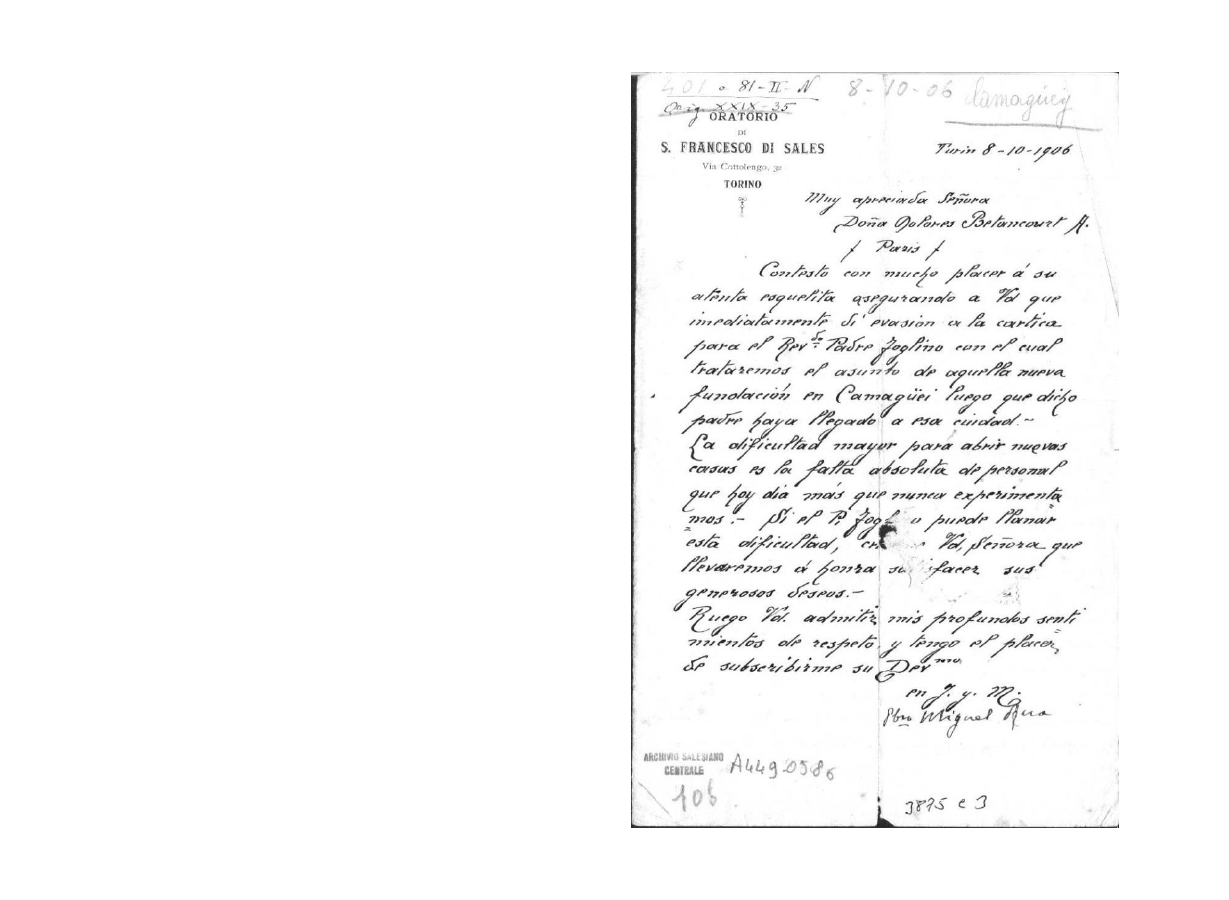 401 o 81-II-N 8-10-06 Camagüey
Orig XXIX-35
ORATORIO
DI
S. FRANCESCO DI SALES
Via Cottolengo, 32
TORINO
Turin 8-10-1906
Muy apreciada Señora
Doña Dolores Betancourt A.
Paris
Contesto con mucho placer á su
atenta esquelita asegurando a Vd que
imediatamente dí evasion a la cartica
para el Revdo Padre Foglino con el cual
trataremos el asunto de aquella nueva
fundación en Camagüei luego que dicho
padre haya llegado a esa ciudad.-
La dificultad mayor para abrir nuevas
casas es la falta absoluta de personal
que hoy dia más que nunca experimenta
mos.- Si el P. Fogl o puede llanar
esta dificultad, Vd, Señora que
llevaremos á honra satisfacer sus
generosos deseos.-
Ruego Vd. admitir mis profundos senti
mientos de respeto y tengo el placer
de subscribirme su Devmo
en J. y. M.
Pbro Miguel Rua
ARCHIVIO SALESIANO
CENTRALE
A4490586
106
3875 C 3